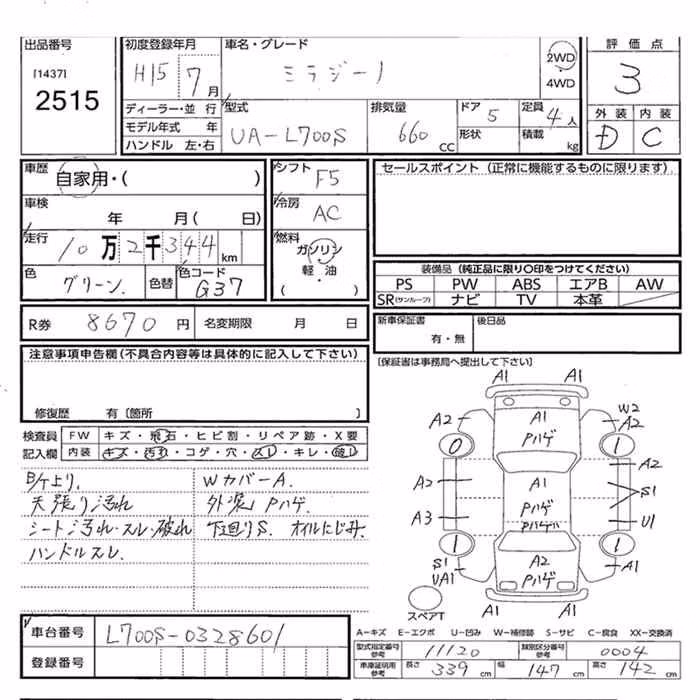 出品番号
[1437]
2515
初度登録年月
H15 7月
車名・グレード
ミラジーノ
2WD
4WD
評価点
3
外装 内装
D C
ディーラー・並 行
モデル年式 年
ハンドル 左・右
型式
UA-L700S
排気量
660 CC
ドア 5
形状
定員 4人
積載 kg
車歴
自家用・( )
車検
年 月( 日)
走行
10万2千344km
色
グリーン.
色替
色コード
G37
シフト
F5
冷房
AC
燃料
ガソリン
・
軽・油
( )
セールスポイント (正常に機能するものに限ります)
装備品 (純正品に限り〇印をつけてください)
PS PW ABS エアB AW
SR(サンルーフ) ナビ TV 本革
R券 8670円 名変期限 月 日
新車保証書
有・無
後日品
注意事項申告欄(不具合内容等は具体的に記入して下さい)
修復歴 有〔箇所 〕
[保証書は事務局へ提出して下さい]
検査員
記入欄
FW キズ・飛石・ヒビ割・リペア跡・X要
内装 キズ・汚れ・コゲ・穴・スレ・キレ・破レ
Wカバ-A.
天張り汚れ
外装 Pハゲ.
シート汚れ・スレ・破れ
下廻りS. オイルにじみ.
ハンドルスレ.
A1
A1 A1
A2 A1 Pハゲ W2 A2
0 1
A2 A2
A1 Pハゲ Pハゲ
S1
A3 U1
1 1
S1 UA1 A2 Pハゲ A1
スペアT
A1 A1
A1
車台番号 L700S-0328601
登録番号
A-キズ E-エクボ U-凹み W-補修跡 S-サビ C-腐食 XX-交換済
型式指定番号 参考 11120 類別区分番号 参考 0004
車庫証明用 参考 長さ 339 cm 幅 147 cm 高さ 142 cm